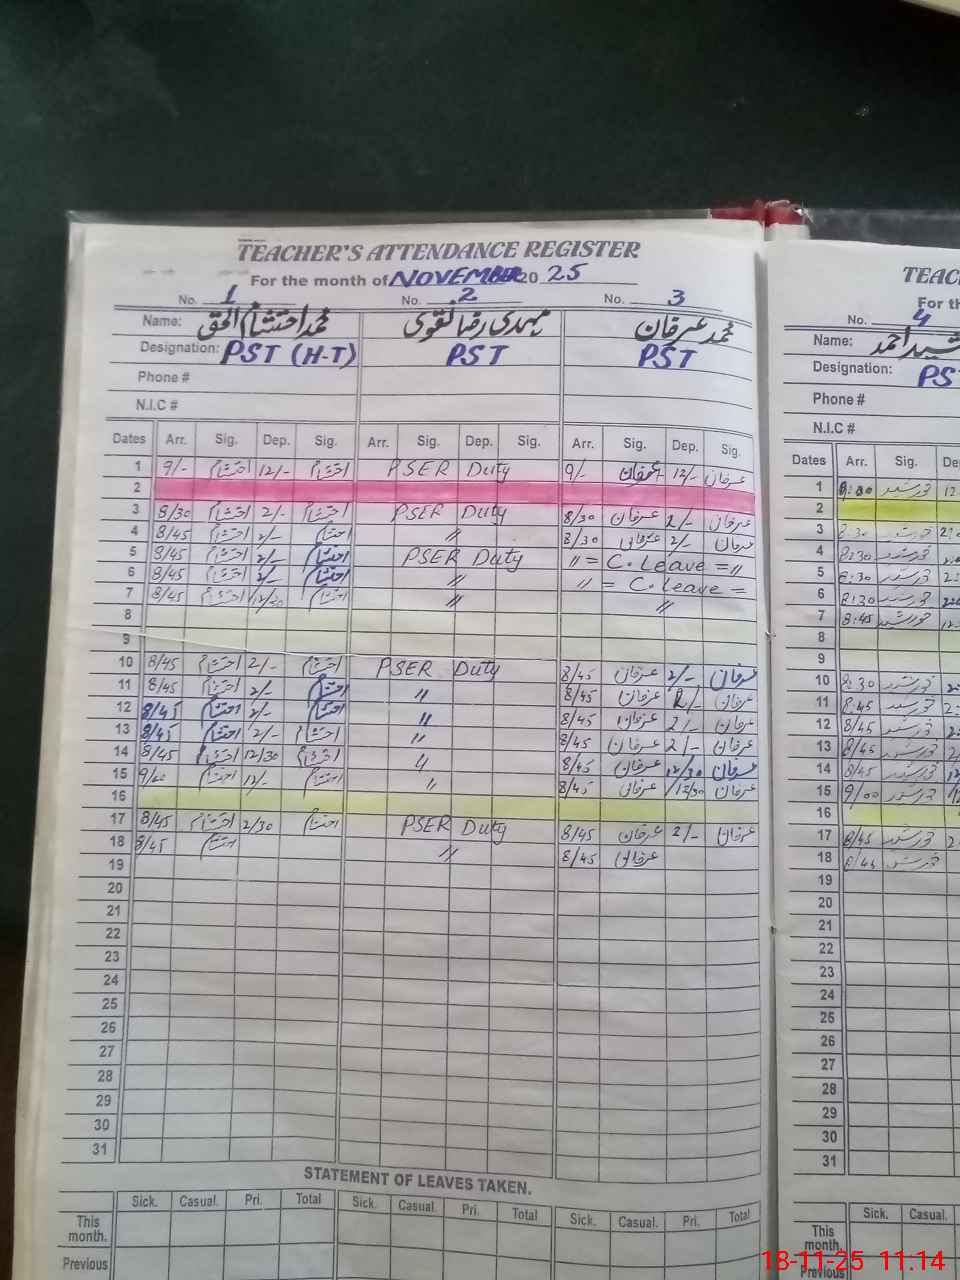 TEACHER'S ATTENDANCE REGISTER
For the month of NOVEMBER 20 25
No. 1 No. 2 No. 3
Name: محمد احتشام الحق مہدی رضا نقوی محمد عرفان
Designation: PST (H-T) PST PST
Phone #
N.I.C #
Dates Arr. Sig. Dep. Sig. Arr. Sig. Dep. Sig. Arr. Sig. Dep. Sig.
1 9/- احتشام 12/- احتشام PSER Duty 9/- عرفان 12/- عرفان
2
3 8/30 احتشام 2/- احتشام PSER Duty 8/30 عرفان 2/- عرفان
4 8/45 احتشام 2/- احتشام " 8/30 عرفان 2/- عرفان
5 8/45 احتشام 2/- احتشام PSER Duty " = C. Leave = "
6 8/45 احتشام 2/- احتشام " " = C. Leave =
7 8/45 احتشام 12/30 احتشام " "
8
9
10 8/45 احتشام 2/- احتشام PSER Duty 8/45 عرفان 2/- عرفان
11 8/45 احتشام 2/- احتشام " 8/45 عرفان 2/- عرفان
12 8/45 احتشام 2/- احتشام " 8/45 عرفان 2/- عرفان
13 8/45 احتشام 2/- احتشام " 8/45 عرفان 2/- عرفان
14 8/45 احتشام 12/30 احتشام " 8/45 عرفان 12/30 عرفان
15 احتشام 12/- احتشام " 8/45 عرفان 12/30 عرفان
16
17 8/45 احتشام 2/30 احتشام PSER Duty 8/45 عرفان 2/- عرفان
18 8/45 احتشام " 8/45 عرفان
19
20
21
22
23
24
25
26
27
28
29
30
31
STATEMENT OF LEAVES TAKEN.
Sick. Casual. Pri. Total Sick. Casual. Pri. Total Sick. Casual. Pri. Total
This month.
Previous
TEAC
For th
No. 4
Name: شید احمد
Designation: PS
Phone #
N.I.C #
Dates Arr. Sig. De
1 8:30 خورشید 12
2
3 8:30 خورشید
4 8:30 خورشید
5 8:30 خورشید
6 8:30 خورشید
7 8:45 خورشید 12
8
9
10 8:30 خورشید
11 8:45 خورشید
12 8/45 خورشید
13 8/45 خورشید
14 8/45 خورشید
15 9/00 خورشید
16
17 8/45 خورشید
18 8/45 خورشید
19
20
21
22
23
24
25
26
27
28
29
30
31
Sick. Casual.
This month.
Previous
18-11-25 11.14